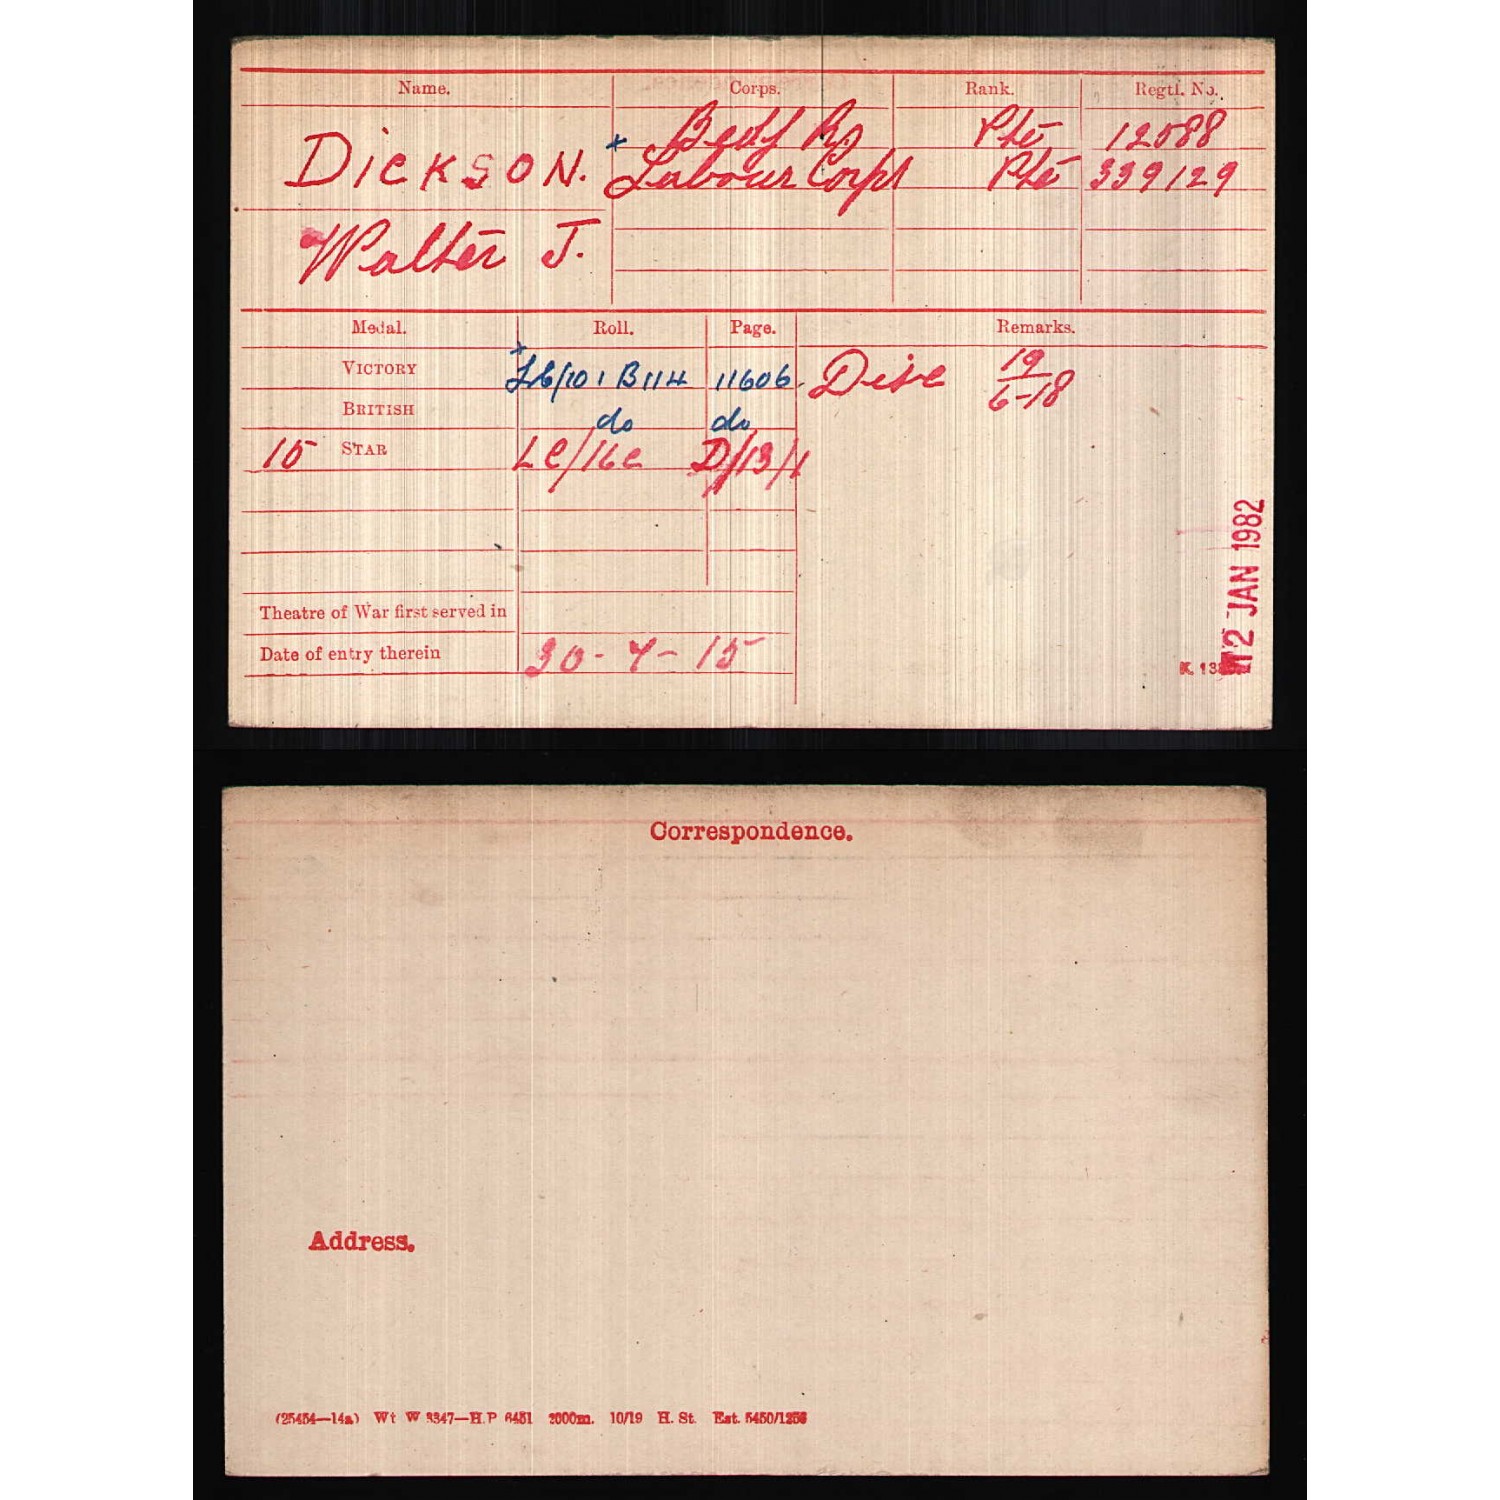 Name. Corps. Rank. Regtl. No.
Bedf R Pte 12588
DICKSON. * Labour Corps Pte 339129
Walter J.
Medal. Roll. Page. Remarks.
VICTORY * Lb/101 B114 11606. Disc 19/6-18
BRITISH do do
15 STAR LC/16C D/13/1
Theatre of War first served in
Date of entry therein 30-7-15
K. 13
12 JAN 1982
Correspondence.
Address.
(25454—14a) Wt W 3347—H.P 6451 2000m. 10/19 H. St. Est. 5450/1256